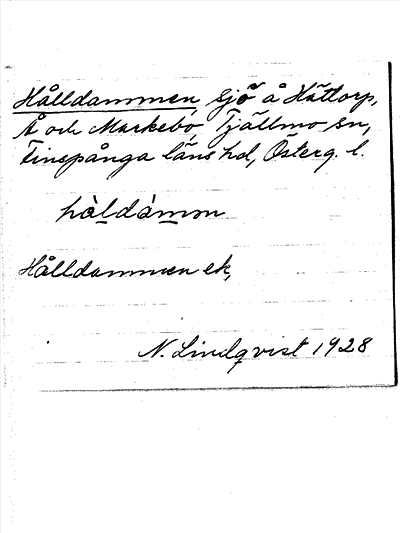 Hålldammen, sjö å Hättorp,
Å och Markebo, Tjällmo sn,
Finspånga läns hd, Österg. l.
hàldámm
Hålldammen ek,
N. Lindqvist 1928